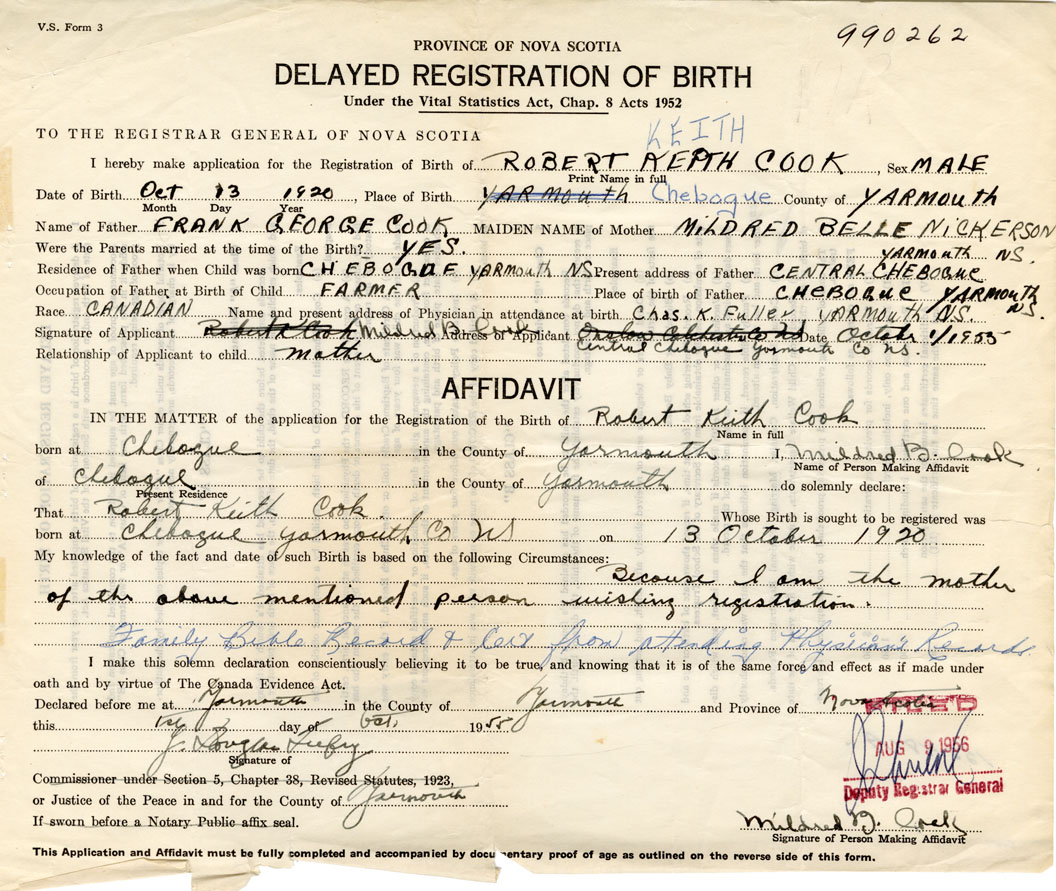 V.S. Form 3
990262
PROVINCE OF NOVA SCOTIA
DELAYED REGISTRATION OF BIRTH
Under the Vital Statistics Act, Chap. 8 Acts 1952
TO THE REGISTRAR GENERAL OF NOVA SCOTIA
KEITH
I hereby make application for the Registration of Birth of ROBERT KEITH COOK, Sex MALE
Print Name in full
Date of Birth Oct 13 1920, Place of Birth YARMOUTH Chebogue County of YARMOUTH
Month Day Year
Name of Father FRANK GEORGE COOK MAIDEN NAME of Mother MILDRED BELLE NICKERSON
Were the Parents married at the time of the Birth? YES. YARMOUTH NS.
Residence of Father when Child was born CHEBOGUE YARMOUTH NS Present address of Father CENTRAL CHEBOGUE
Occupation of Father at Birth of Child FARMER Place of birth of Father CHEBOGUE YARMOUTH NS.
Race CANADIAN Name and present address of Physician in attendance at birth Chas. K. Fuller, YARMOUTH NS.
Signature of Applicant Robert K Cook Mildred B. Cook Address of Applicant Date October 1/1955
Central Chebogue Yarmouth Co NS.
Relationship of Applicant to child mother
AFFIDAVIT
IN THE MATTER of the application for the Registration of the Birth of Robert Keith Cook
Name in full
born at Chebogue in the County of Yarmouth I, Mildred B. Cook
Name of Person Making Affidavit
of Chebogue in the County of Yarmouth do solemnly declare:
Present Residence
That Robert Keith Cook Whose Birth is sought to be registered was
born at Chebogue Yarmouth Co NS on 13 October 1920
My knowledge of the fact and date of such Birth is based on the following Circumstances:
Because I am the mother
of the above mentioned person wishing registration.
Family Bible Record & Cert from attending Physician's Records
I make this solemn declaration conscientiously believing it to be true, and knowing that it is of the same force and effect as if made under
oath and by virtue of The Canada Evidence Act.
Declared before me at Yarmouth in the County of Yarmouth and Province of Nova Scotia
this 1st day of Oct. 1955
J. Douglas
Signature of
Commissioner under Section 5, Chapter 38, Revised Statutes, 1923,
or Justice of the Peace in and for the County of Yarmouth
If sworn before a Notary Public affix seal.
AUG 9 1956
Deputy Registrar General
Mildred B. Cook
Signature of Person Making Affidavit
This Application and Affidavit must be fully completed and accompanied by documentary proof of age as outlined on the reverse side of this form.